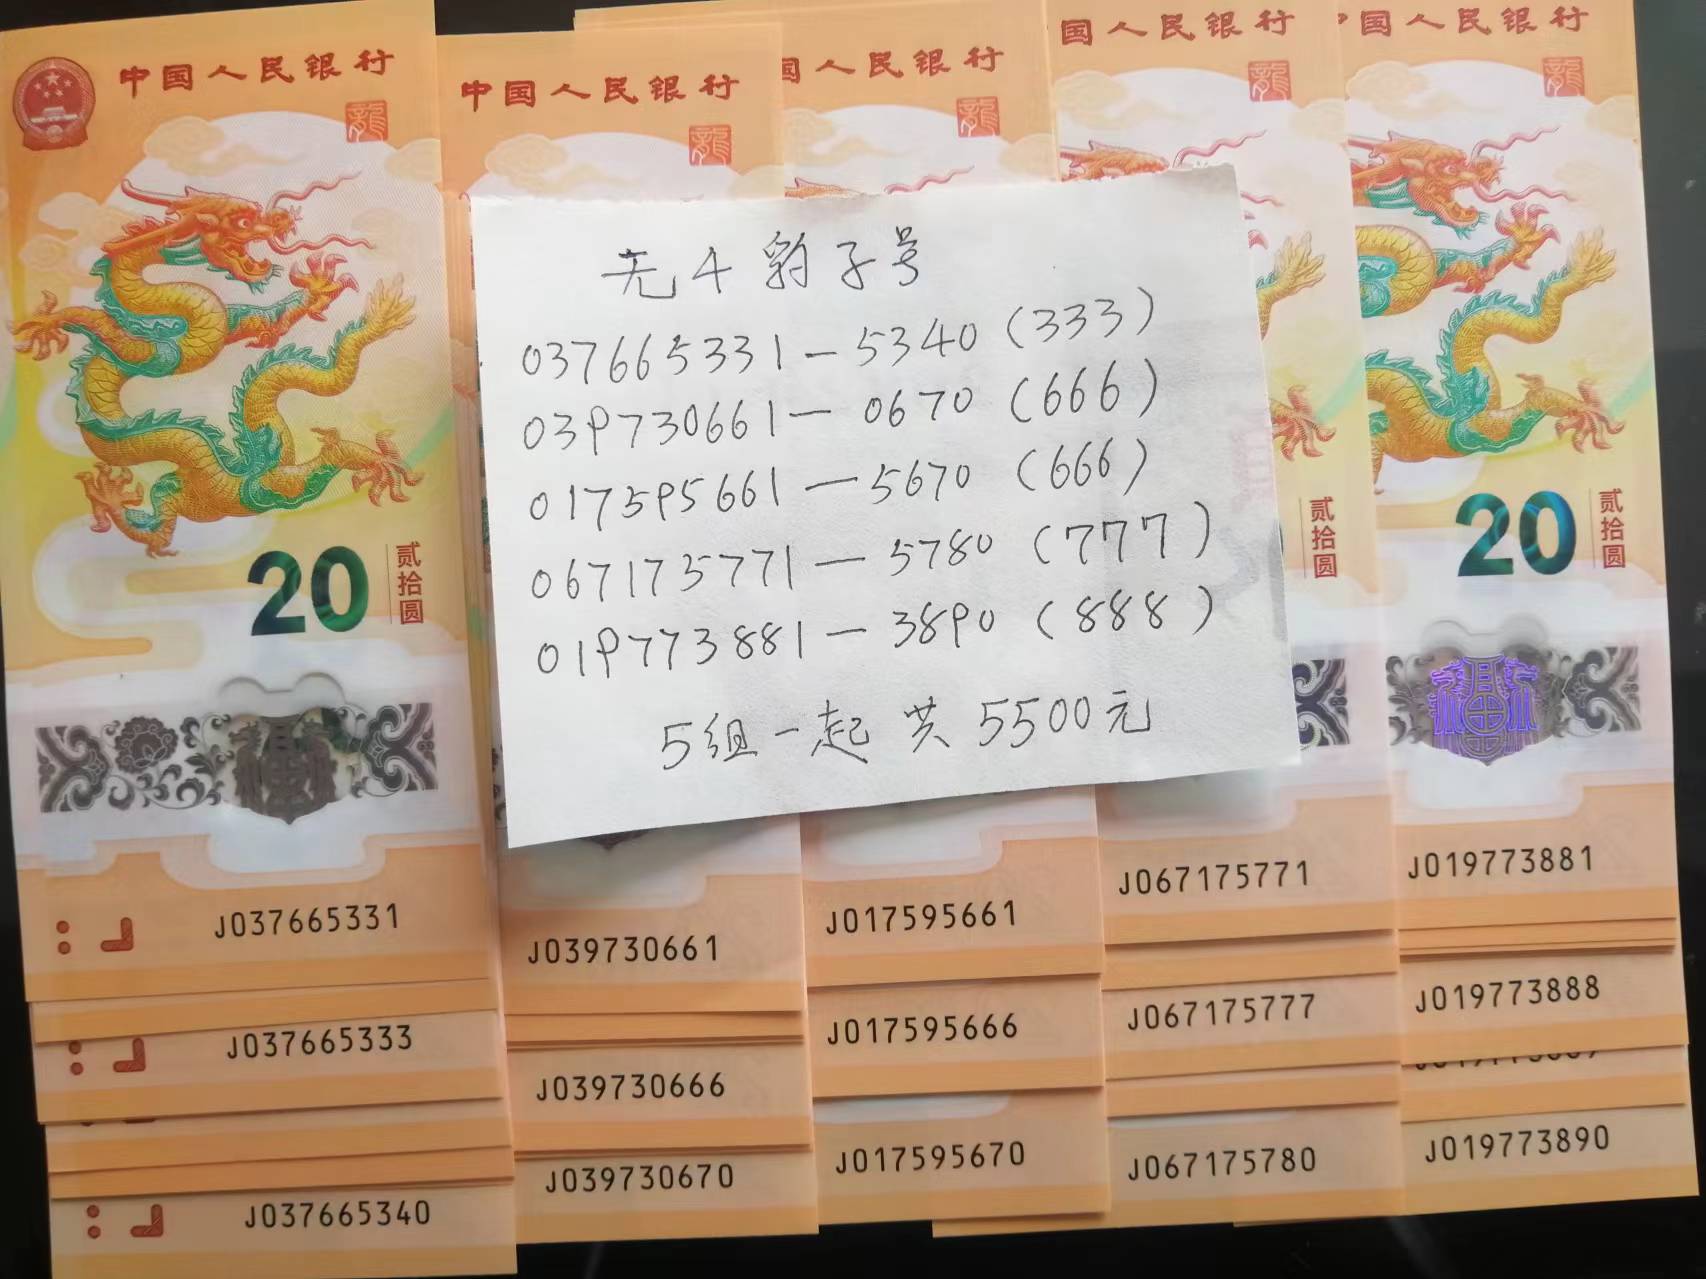 中国人民银行
龍
20
贰拾圆
J037665331
J037665333
J037665340
中国人民银行
龍
J039730661
J039730666
J039730670
国人民银行
龍
J017595661
J017595666
J017595670
国人民银行
龍
贰拾圆
J067175771
J067175777
J067175780
国人民银行
龍
20
贰拾圆
J019773881
J019773888
J019773890
无4豹子号
037665331—5340(333)
039730661—0670(666)
017595661—5670(666)
067175771—5780(777)
019773881—3890(888)
5组一起 共5500元